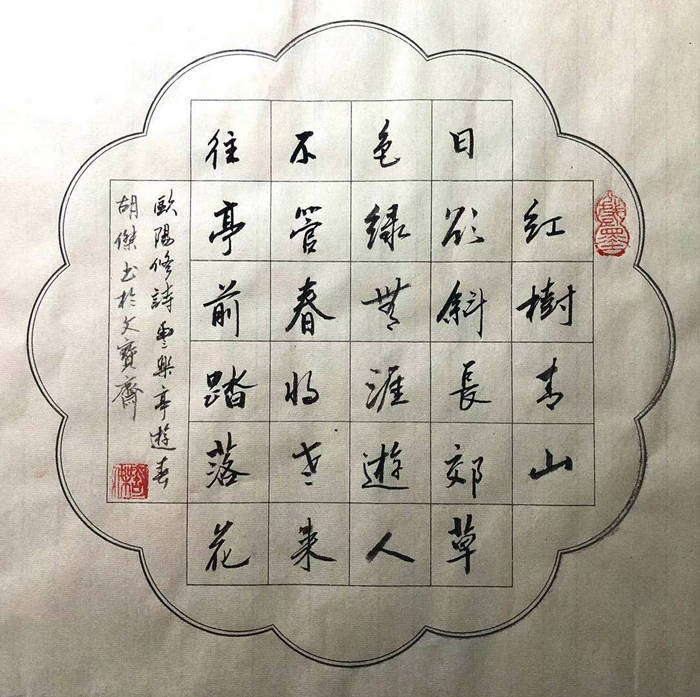 紅樹青山
日欲斜長郊草
色綠無涯遊人
不管春將老来
往亭前踏落花
歐陽修詩豐樂亭遊春
胡傑书於文寶齋